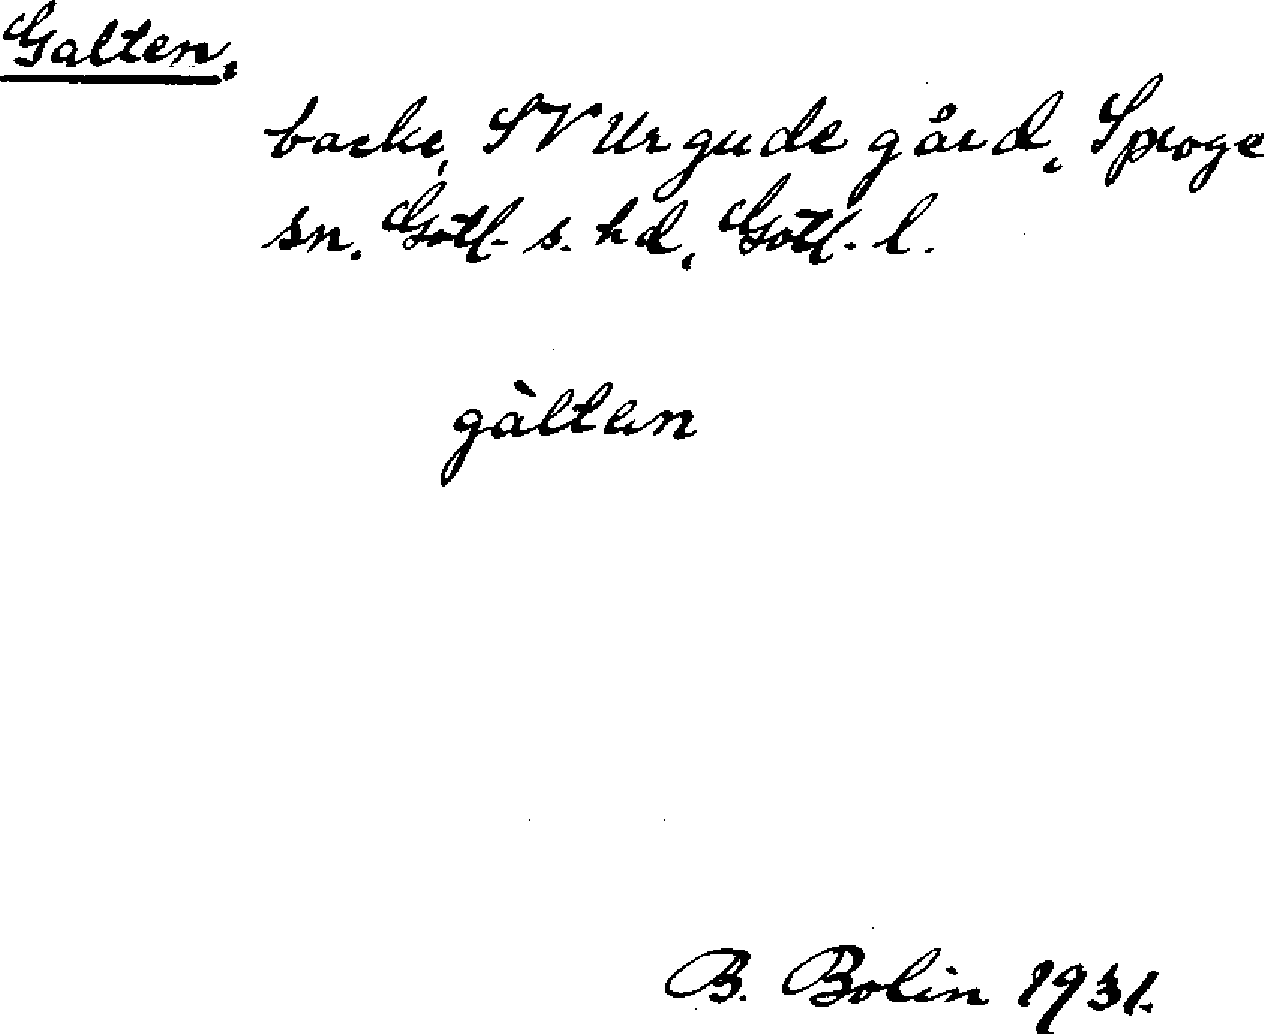 Galten.
backe, SV Urgude gård, Sproge
sn. Gotl. s. hd, Gotl. l.
gàlten
B. Bolin 1931.